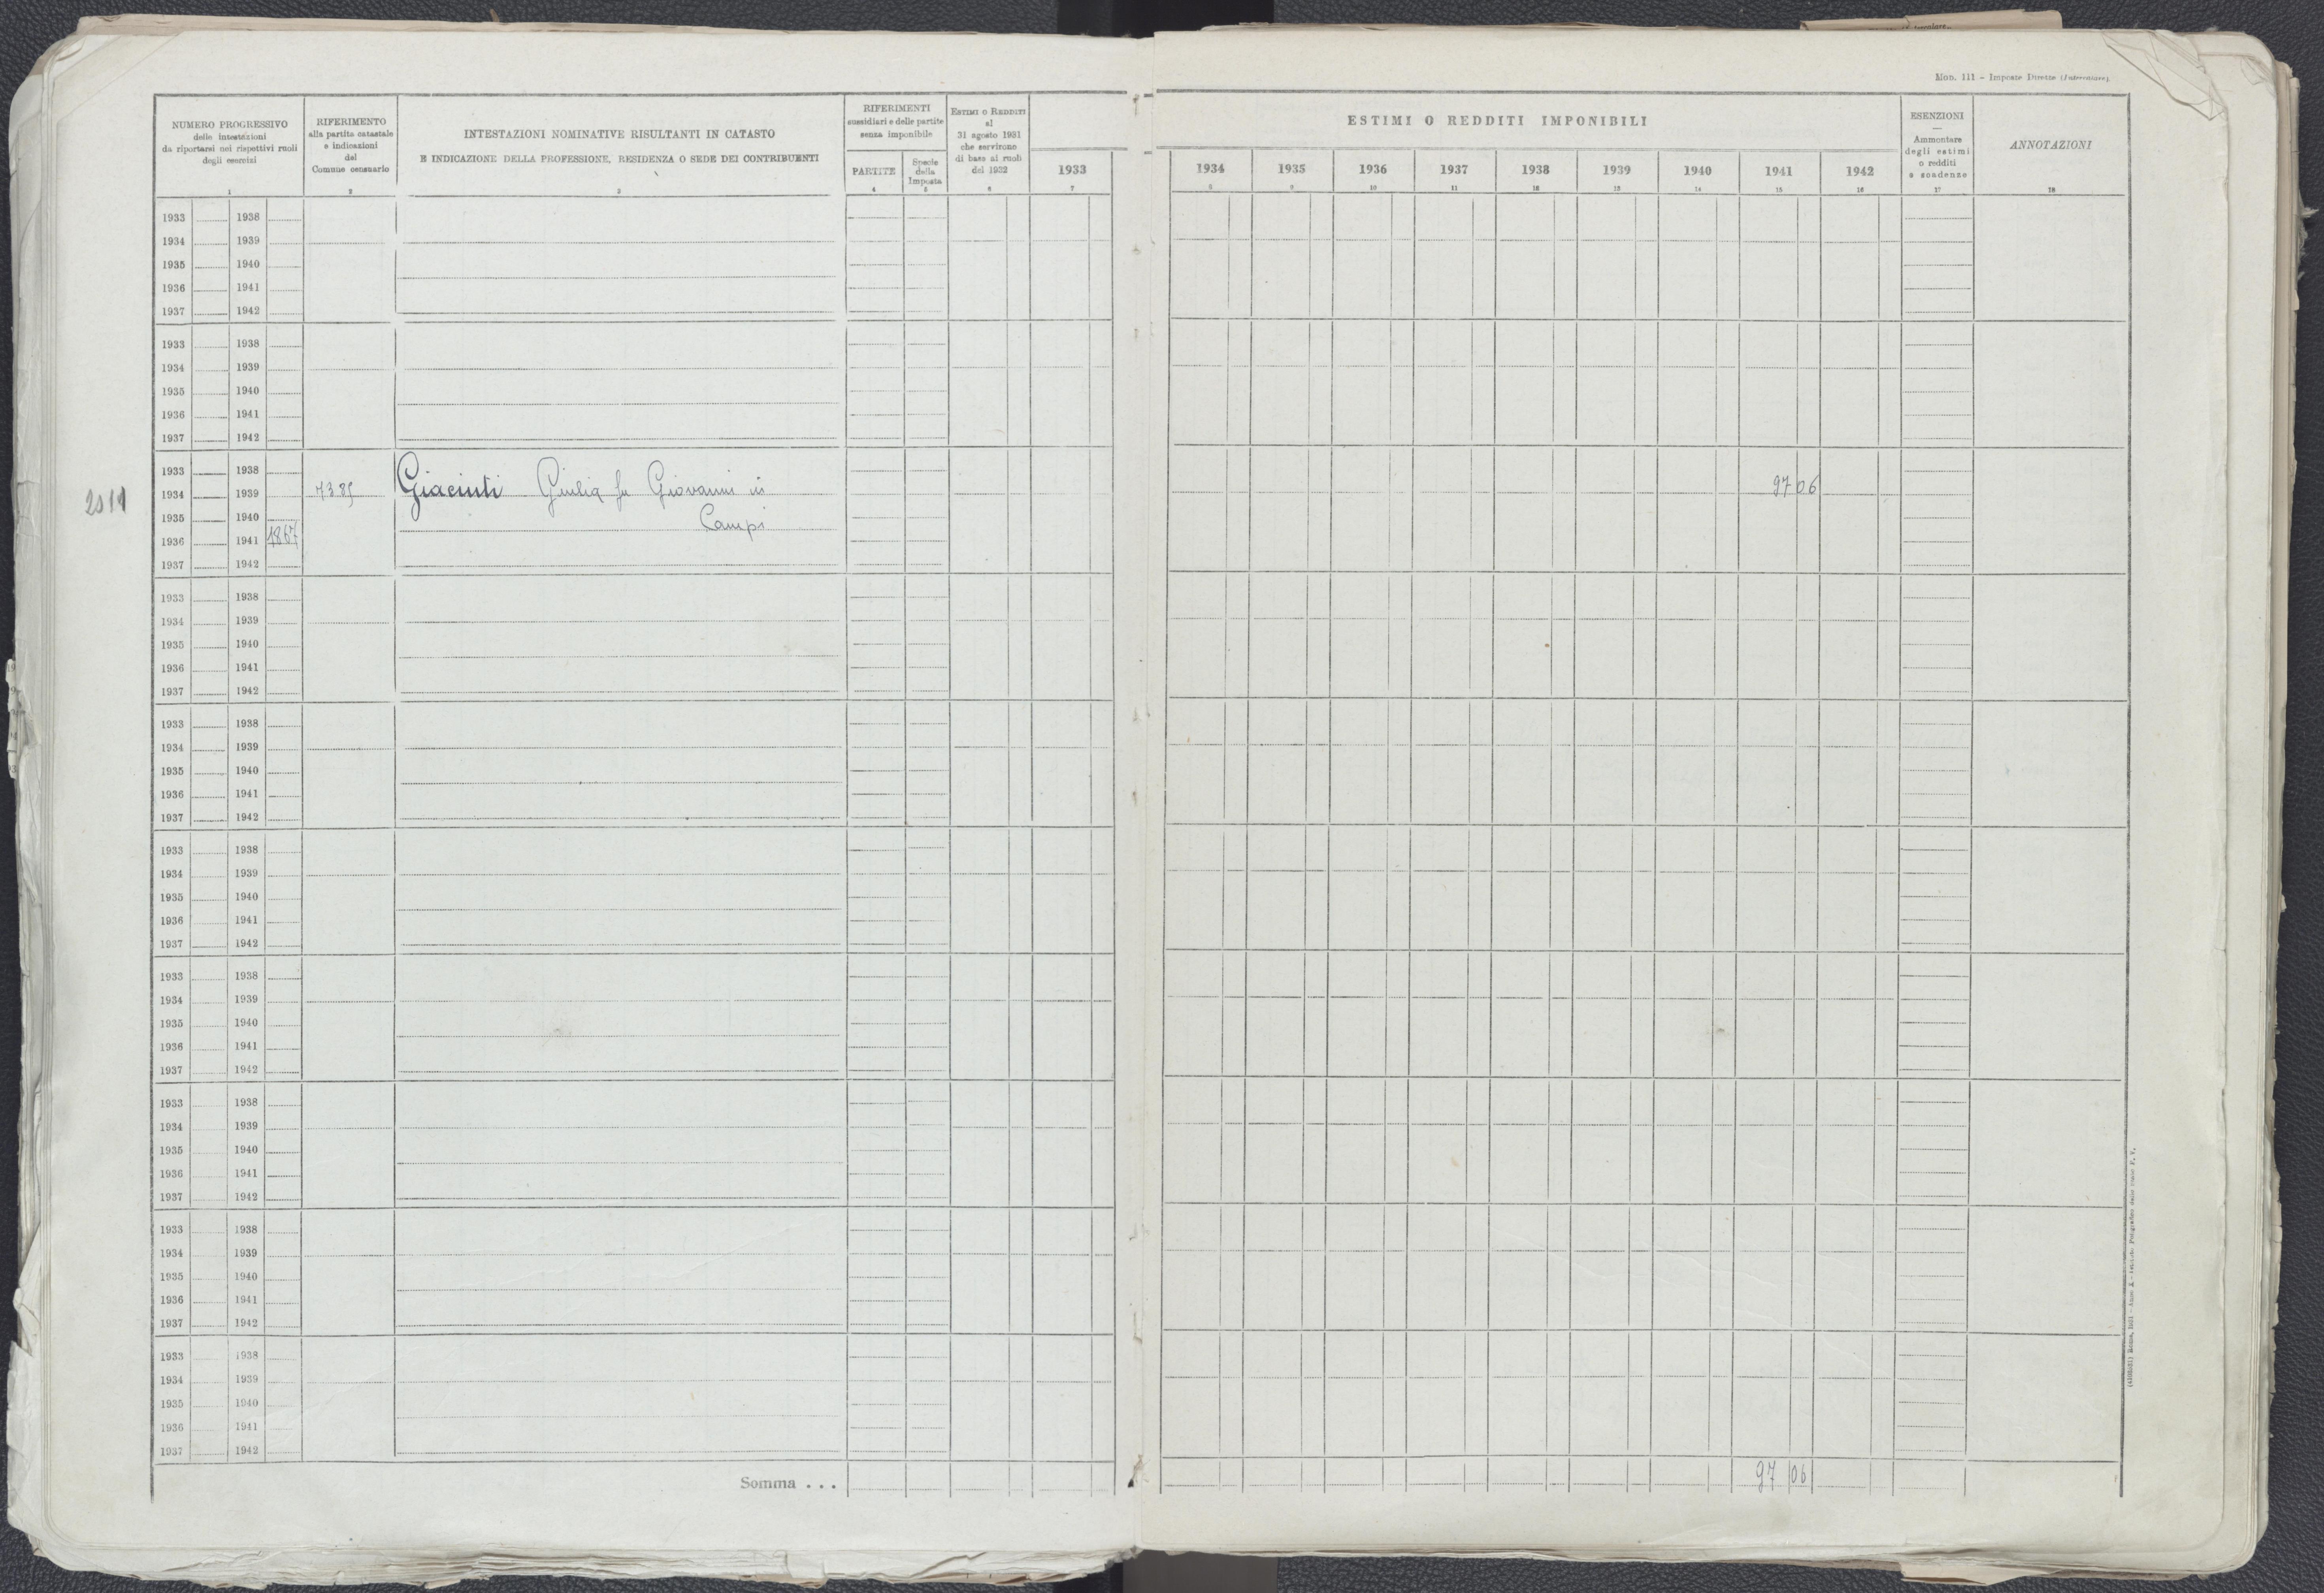 Mon. 111 - Imposte Dirette (Intercalare).
NUMERO PROGRESSIVO
delle intestazioni
da riportarsi nei rispettivi ruoli
degli esercizi
1
RIFERIMENTO
alla partita catastale
e indicazioni
del
Comune censuario
2
INTESTAZIONI NOMINATIVE RISULTANTI IN CATASTO
E INDICAZIONE DELLA PROFESSIONE, RESIDENZA O SEDE DEI CONTRIBUENTI
3
RIFERIMENTI
sussidiari e delle partite
senza imponibile
PARTITE
4
Specie
della
Imposta
5
ESTIMI O REDDITI
al
31 agosto 1931
che servirono
di base ai ruoli
del 1932
6
1933
7
ESTIMI O REDDITI IMPONIBILI
1934 1935 1936 1937 1938 1939 1940 1941 1942
8 9 10 11 12 13 14 15 16
ESENZIONI
—
Ammontare
degli estimi
o redditi
e scadenze
17
ANNOTAZIONI
18
1933 1938
1934 1939
1935 1940
1936 1941
1937 1942
1933 1938
1934 1939
1935 1940
1936 1941
1937 1942
1933 1938
1934 1939 7385 Giacinti Giulia fu Giovanni in 97 06
1935 1940 Campi
1936 1941 1867
1937 1942
1933 1938
1934 1939
1935 1940
1936 1941
1937 1942
1933 1938
1934 1939
1935 1940
1936 1941
1937 1942
1933 1938
1934 1939
1935 1940
1936 1941
1937 1942
1933 1938
1934 1939
1935 1940
1936 1941
1937 1942
1933 1938
1934 1939
1935 1940
1936 1941
1937 1942
1933 1938
1934 1939
1935 1940
1936 1941
1937 1942
1933 1938
1934 1939
1935 1940
1936 1941
1937 1942
Somma . . . 97 06